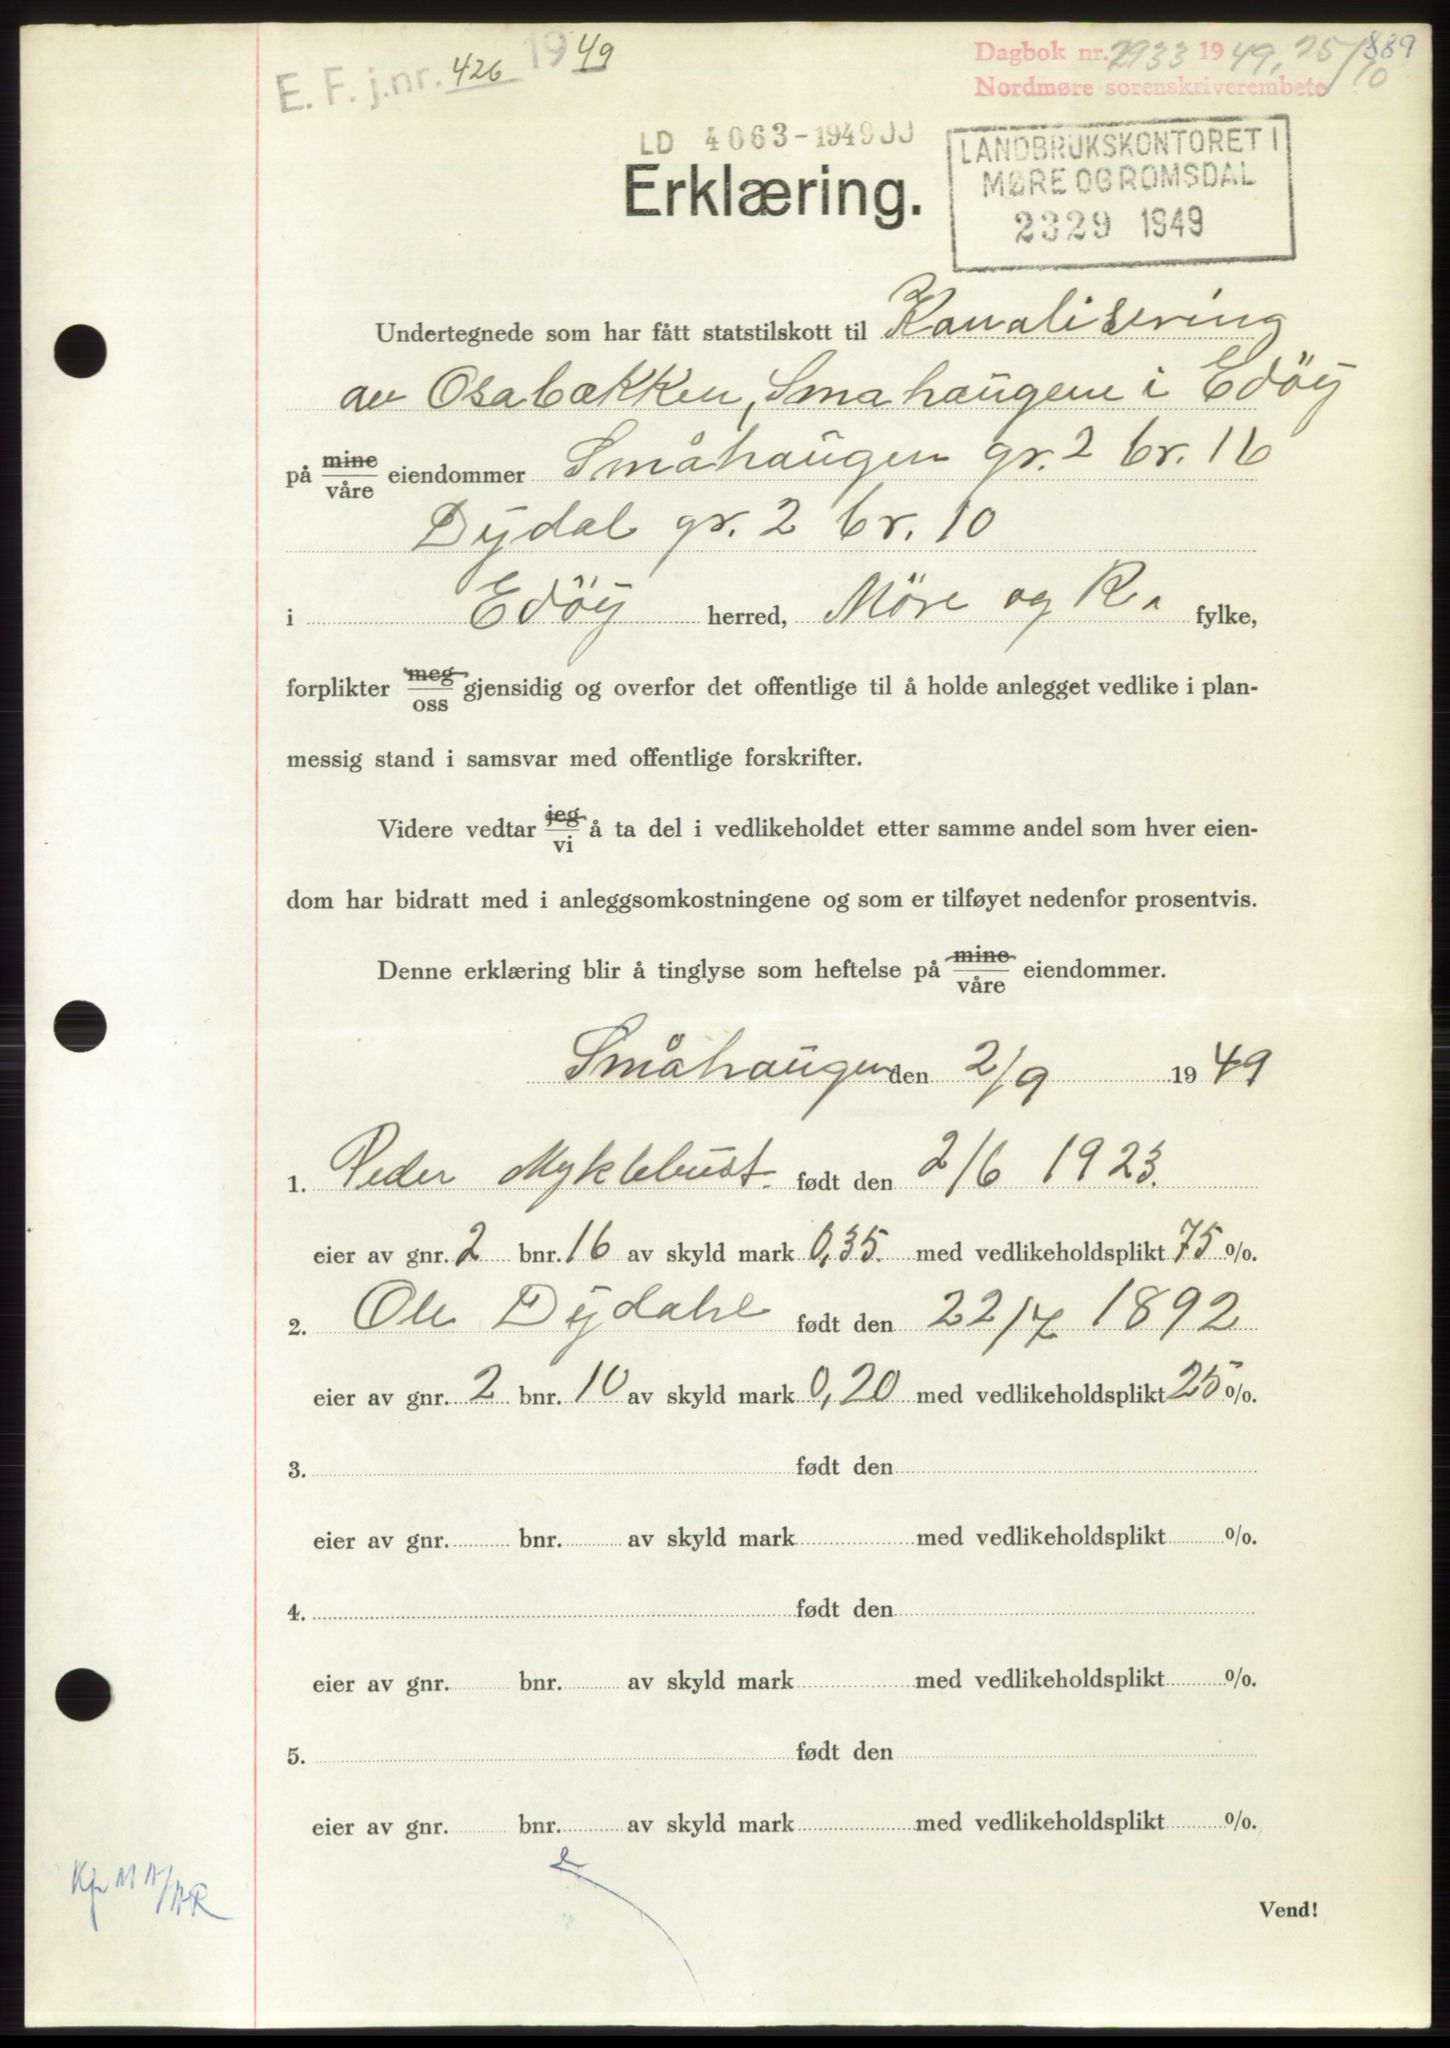 E. F. j.nr. 426 1949
Dagbok nr. 2933 1949, 25/10
889
Nordmøre sorenskriverembete
LD 4063-1949 JJ
Erklæring.
LANDBRUKSKONTORET I
MØRE OG ROMSDAL
2329 1949
Undertegnede som har fått statstilskott til Kanalisering
av Osabækken, Småhaugene i Edöy
på mine/våre eiendommer Småhaugen gr. 2 br. 16
Dydal gr. 2 br. 10
i Edöy herred, Möre og R. fylke,
forplikter meg/oss gjensidig og overfor det offentlige til å holde anlegget vedlike i plan-
messig stand i samsvar med offentlige forskrifter.
Videre vedtar jeg/vi å ta del i vedlikeholdet etter samme andel som hver eien-
dom har bidratt med i anleggsomkostningene og som er tilføyet nedenfor prosentvis.
Denne erklæring blir å tinglyse som heftelse på mine/våre eiendommer.
Småhaugen den 2/9 1949
1. Peder Myklebust født den 2/6 1923.
eier av gnr. 2 bnr. 16 av skyld mark 0,35 med vedlikeholdsplikt 75 %.
2. Ole Dydahl født den 22/7 1892
eier av gnr. 2 bnr. 10 av skyld mark 0,20 med vedlikeholdsplikt 25 %.
3. født den
eier av gnr. bnr. av skyld mark med vedlikeholdsplikt %.
4. født den
eier av gnr. bnr. av skyld mark med vedlikeholdsplikt %.
5. født den
eier av gnr. bnr. av skyld mark med vedlikeholdsplikt %.
Vend!